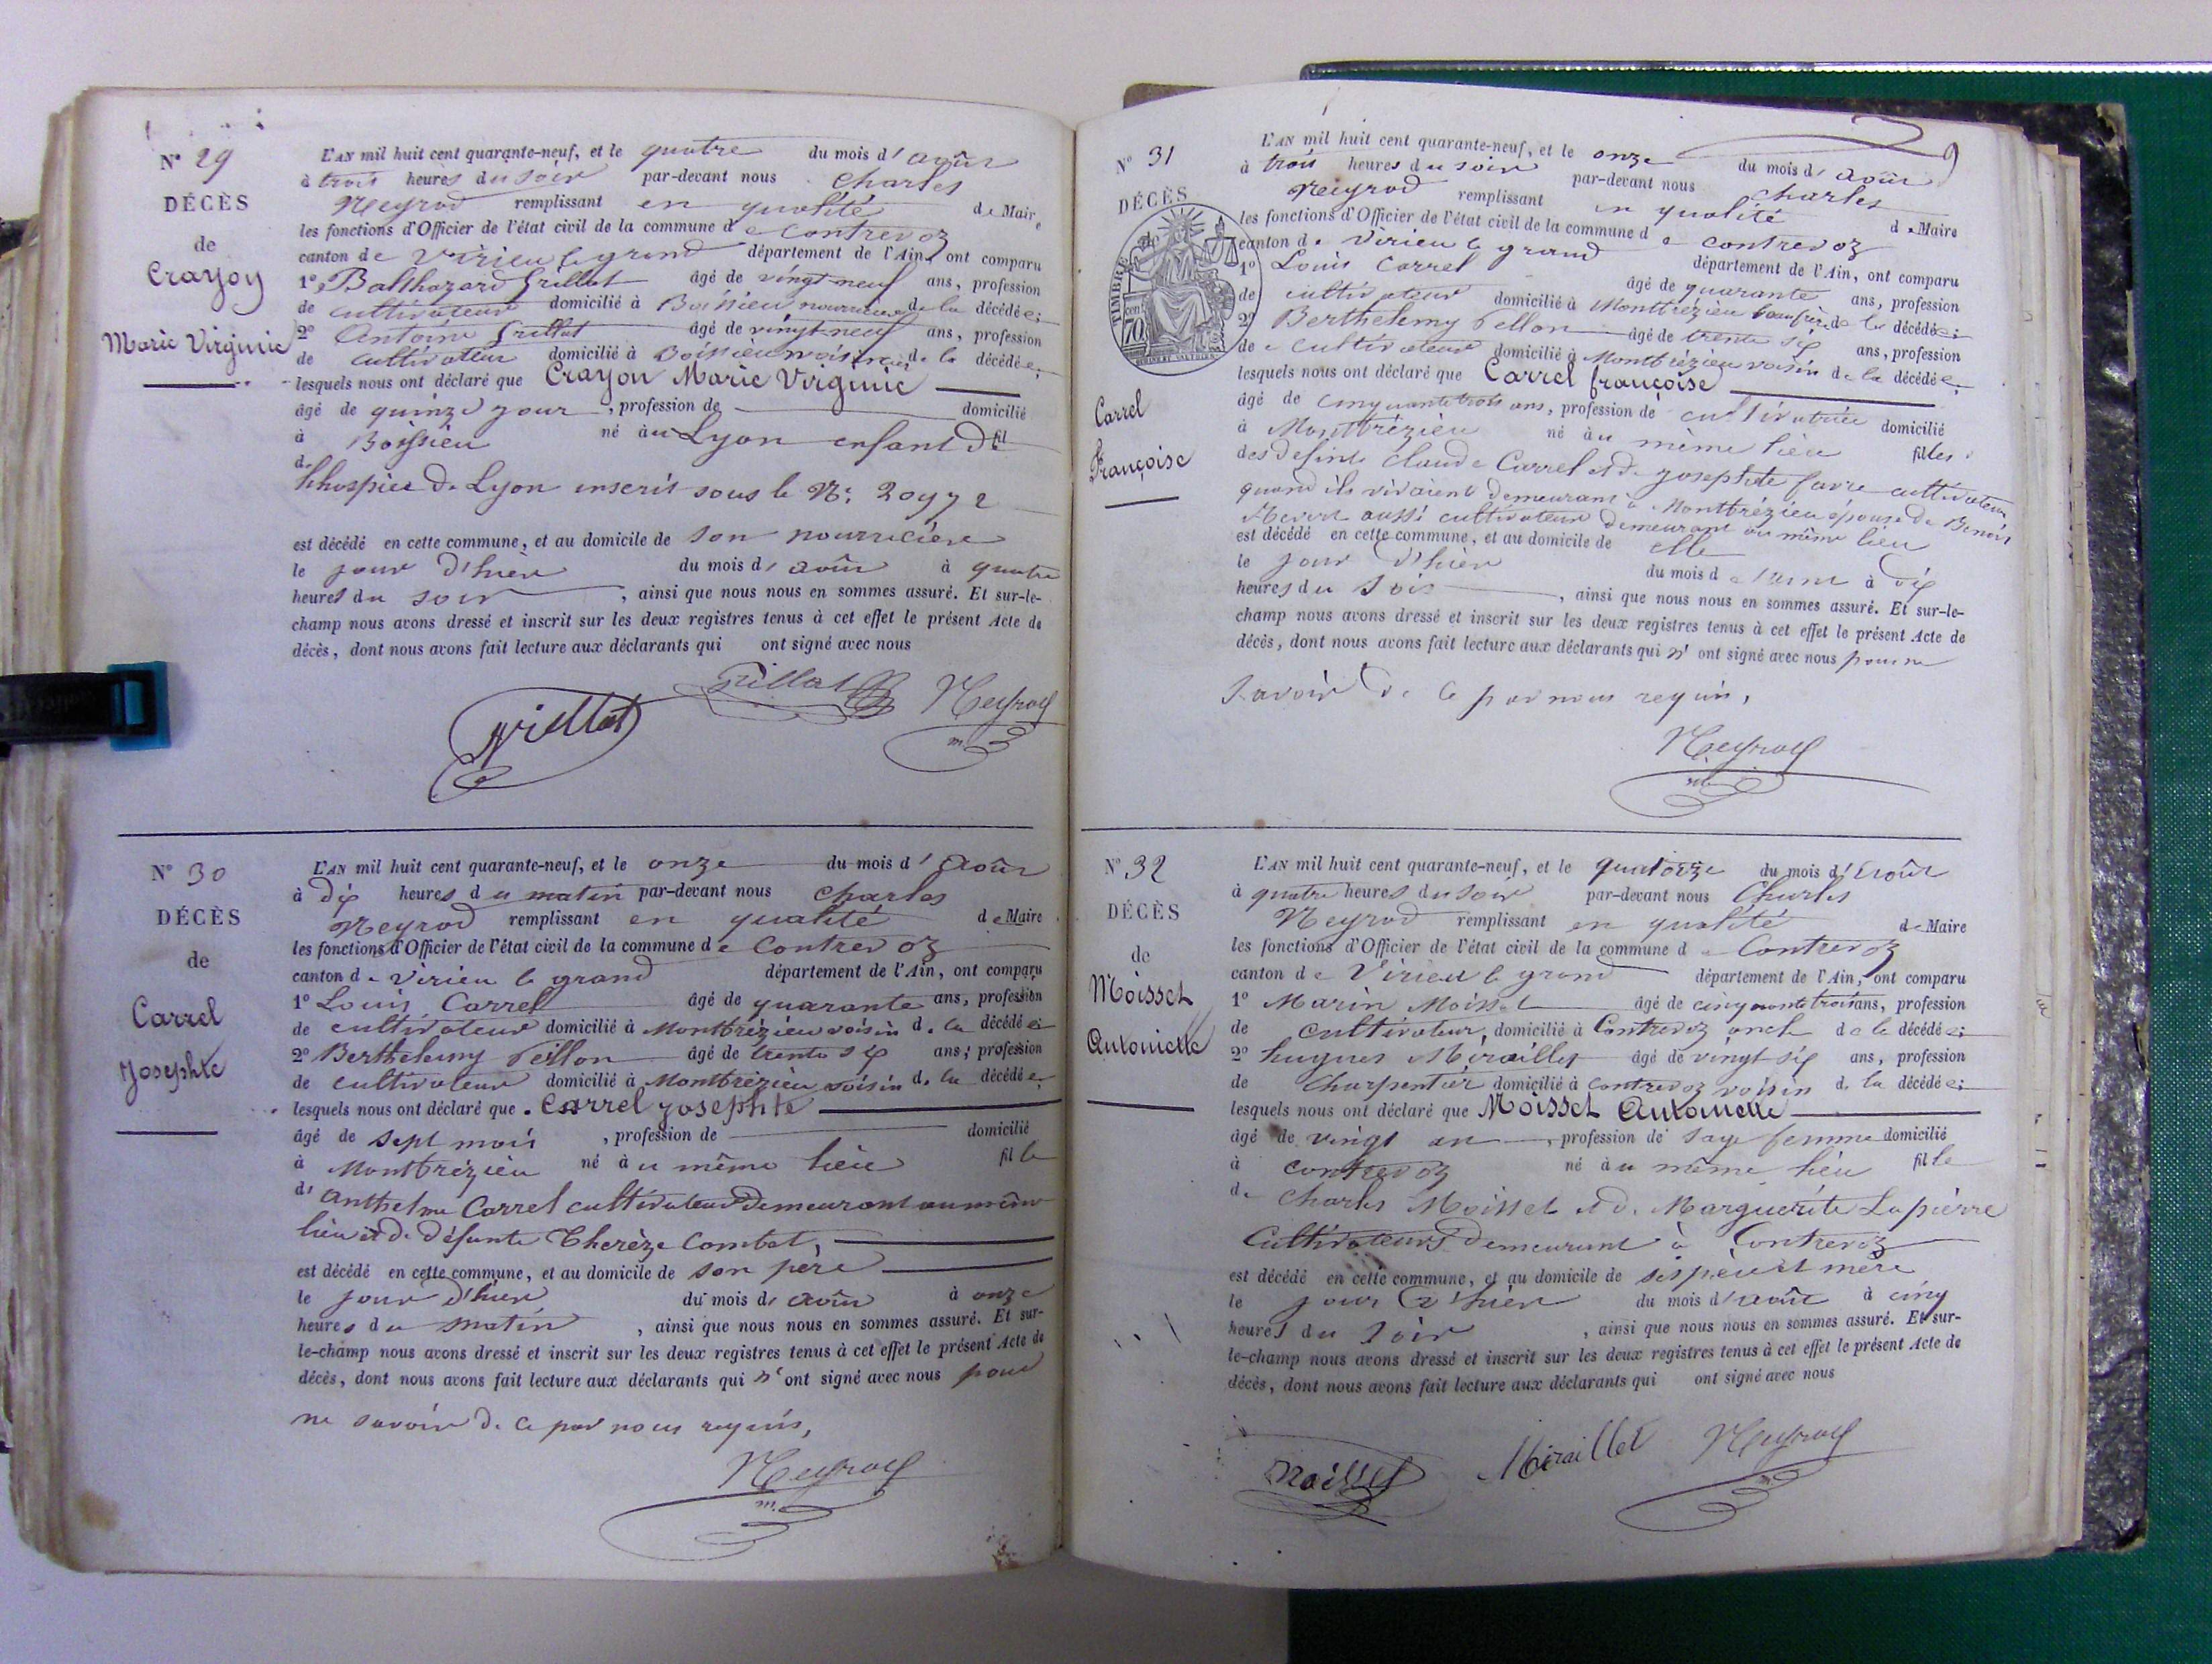 N° 29
DÉCÈS
de
Crayoy
Marie Virginie
L'AN mil huit cent quarante-neuf, et le quatre du mois d'août
à trois heures du soir par-devant nous Charles
Neyrod remplissant en qualité de Maire
les fonctions d'Officier de l'état civil de la commune de Contrevoz
canton de Virieu le grand département de l'Ain, ont comparu
1° Balthazard Grillot âgé de vingt neuf ans, profession
de cultivateur domicilié à Boissieu nourricier de la décédée;
2° Antoine Grillot âgé de vingt neuf ans, profession
de cultivateur domicilié à Boissieu voisin de la décédée;
lesquels nous ont déclaré que Crayon Marie Virginie
âgé de quinze jour, profession de domicilié
à Boissieu né à Lyon enfant de
l'hospice de Lyon inscrit sous le N°. 20972
est décédé en cette commune, et au domicile de son nourricière
le jour d'hier du mois d'août à quatre
heures du soir, ainsi que nous nous en sommes assuré. Et sur-le-
champ nous avons dressé et inscrit sur les deux registres tenus à cet effet le présent Acte de
décès, dont nous avons fait lecture aux déclarants qui ont signé avec nous
Grillot Neyrod
Grillot
N° 30
DÉCÈS
de
Carrel
Josephte
L'AN mil huit cent quarante-neuf, et le onze du mois d'août
à dix heures du matin par-devant nous Charles
Neyrod remplissant en qualité de Maire
les fonctions d'Officier de l'état civil de la commune de Contrevoz
canton de Virieu le grand département de l'Ain, ont comparu
1° Louis Carrel âgé de quarante ans, profession
de cultivateur domicilié à Montbrézieu voisin de la décédée;
2° Berthelemy Peillon âgé de trente six ans, profession
de cultivateur domicilié à Montbrézieu voisin de la décédée;
lesquels nous ont déclaré que Carrel Josephte
âgé de sept mois, profession de domicilié
à Montbrézieu né au même lieu fille
d'Anthelme Carrel cultivateur demeurant au même
lieu et de défunte Therèze Combet,
est décédé en cette commune, et au domicile de son père
le jour d'hier du mois d'août à onze
heures du matin, ainsi que nous nous en sommes assuré. Et sur-
le-champ nous avons dressé et inscrit sur les deux registres tenus à cet effet le présent Acte de
décès, dont nous avons fait lecture aux déclarants qui n'ont signé avec nous pour
ne savoir de ce par nous requis,
Neyrod
N° 31
DÉCÈS
de
TIMBRE
70
Carrel
Françoise
L'AN mil huit cent quarante-neuf, et le onze du mois d'août
à trois heures du soir par-devant nous Charles
Neyrod remplissant en qualité de Maire
les fonctions d'Officier de l'état civil de la commune de Contrevoz
canton de Virieu le grand département de l'Ain, ont comparu
1° Louis Carrel âgé de quarante ans, profession
de cultivateur domicilié à Montbrézieu beaufrère de la décédée;
2° Berthelemy Pellon âgé de trente six ans, profession
de cultivateur domicilié à Montbrézieu voisin de la décédée;
lesquels nous ont déclaré que Carrel françoise
âgé de cinquante trois ans, profession de cultivatrice domicilié
à Montbrézieu né au même lieu filles
des defints Claude Carrel et de Josephte favre cultivateur
quand ils vivaient demeurant à Montbrézieu épouse de Benoit
aussi cultivateur demeurant au même lieu
est décédé en cette commune, et au domicile de elle
le jour d'hier du mois d à dix
heures du soir, ainsi que nous nous en sommes assuré. Et sur-le-
champ nous avons dressé et inscrit sur les deux registres tenus à cet effet le présent Acte de
décès, dont nous avons fait lecture aux déclarants qui n'ont signé avec nous pour ne
savoir de ce par nous requis,
Neyrod
N° 32
DÉCÈS
de
Moisset
Antoinette
L'AN mil huit cent quarante-neuf, et le quatorze du mois d'août
à quatre heures du soir par-devant nous Charles
Neyrod remplissant en qualité de Maire
les fonctions d'Officier de l'état civil de la commune de Contrevoz
canton de Virieu le grand département de l'Ain, ont comparu
1° Marin Moisset âgé de cinquante trois ans, profession
de cultivateur, domicilié à Contrevoz oncle de la décédée;
2° hugues Miraillet âgé de vingt six ans, profession
de Charpentier domicilié à Contrevoz voisin de la décédée;
lesquels nous ont déclaré que Moisset Antoinette
âgé de vingt an, profession de sage femme domicilié
à Contrevoz né au même lieu fille
de Charles Moisset et de Marguerite Lapierre
Cultivateurs demeurant à Contrevoz
est décédé en cette commune, et au domicile de ses père et mère
le jour d'hier du mois d'août à cinq
heures du soir, ainsi que nous nous en sommes assuré. Et sur-
le-champ nous avons dressé et inscrit sur les deux registres tenus à cet effet le présent Acte de
décès, dont nous avons fait lecture aux déclarants qui ont signé avec nous
Moisset Miraillet Neyrod